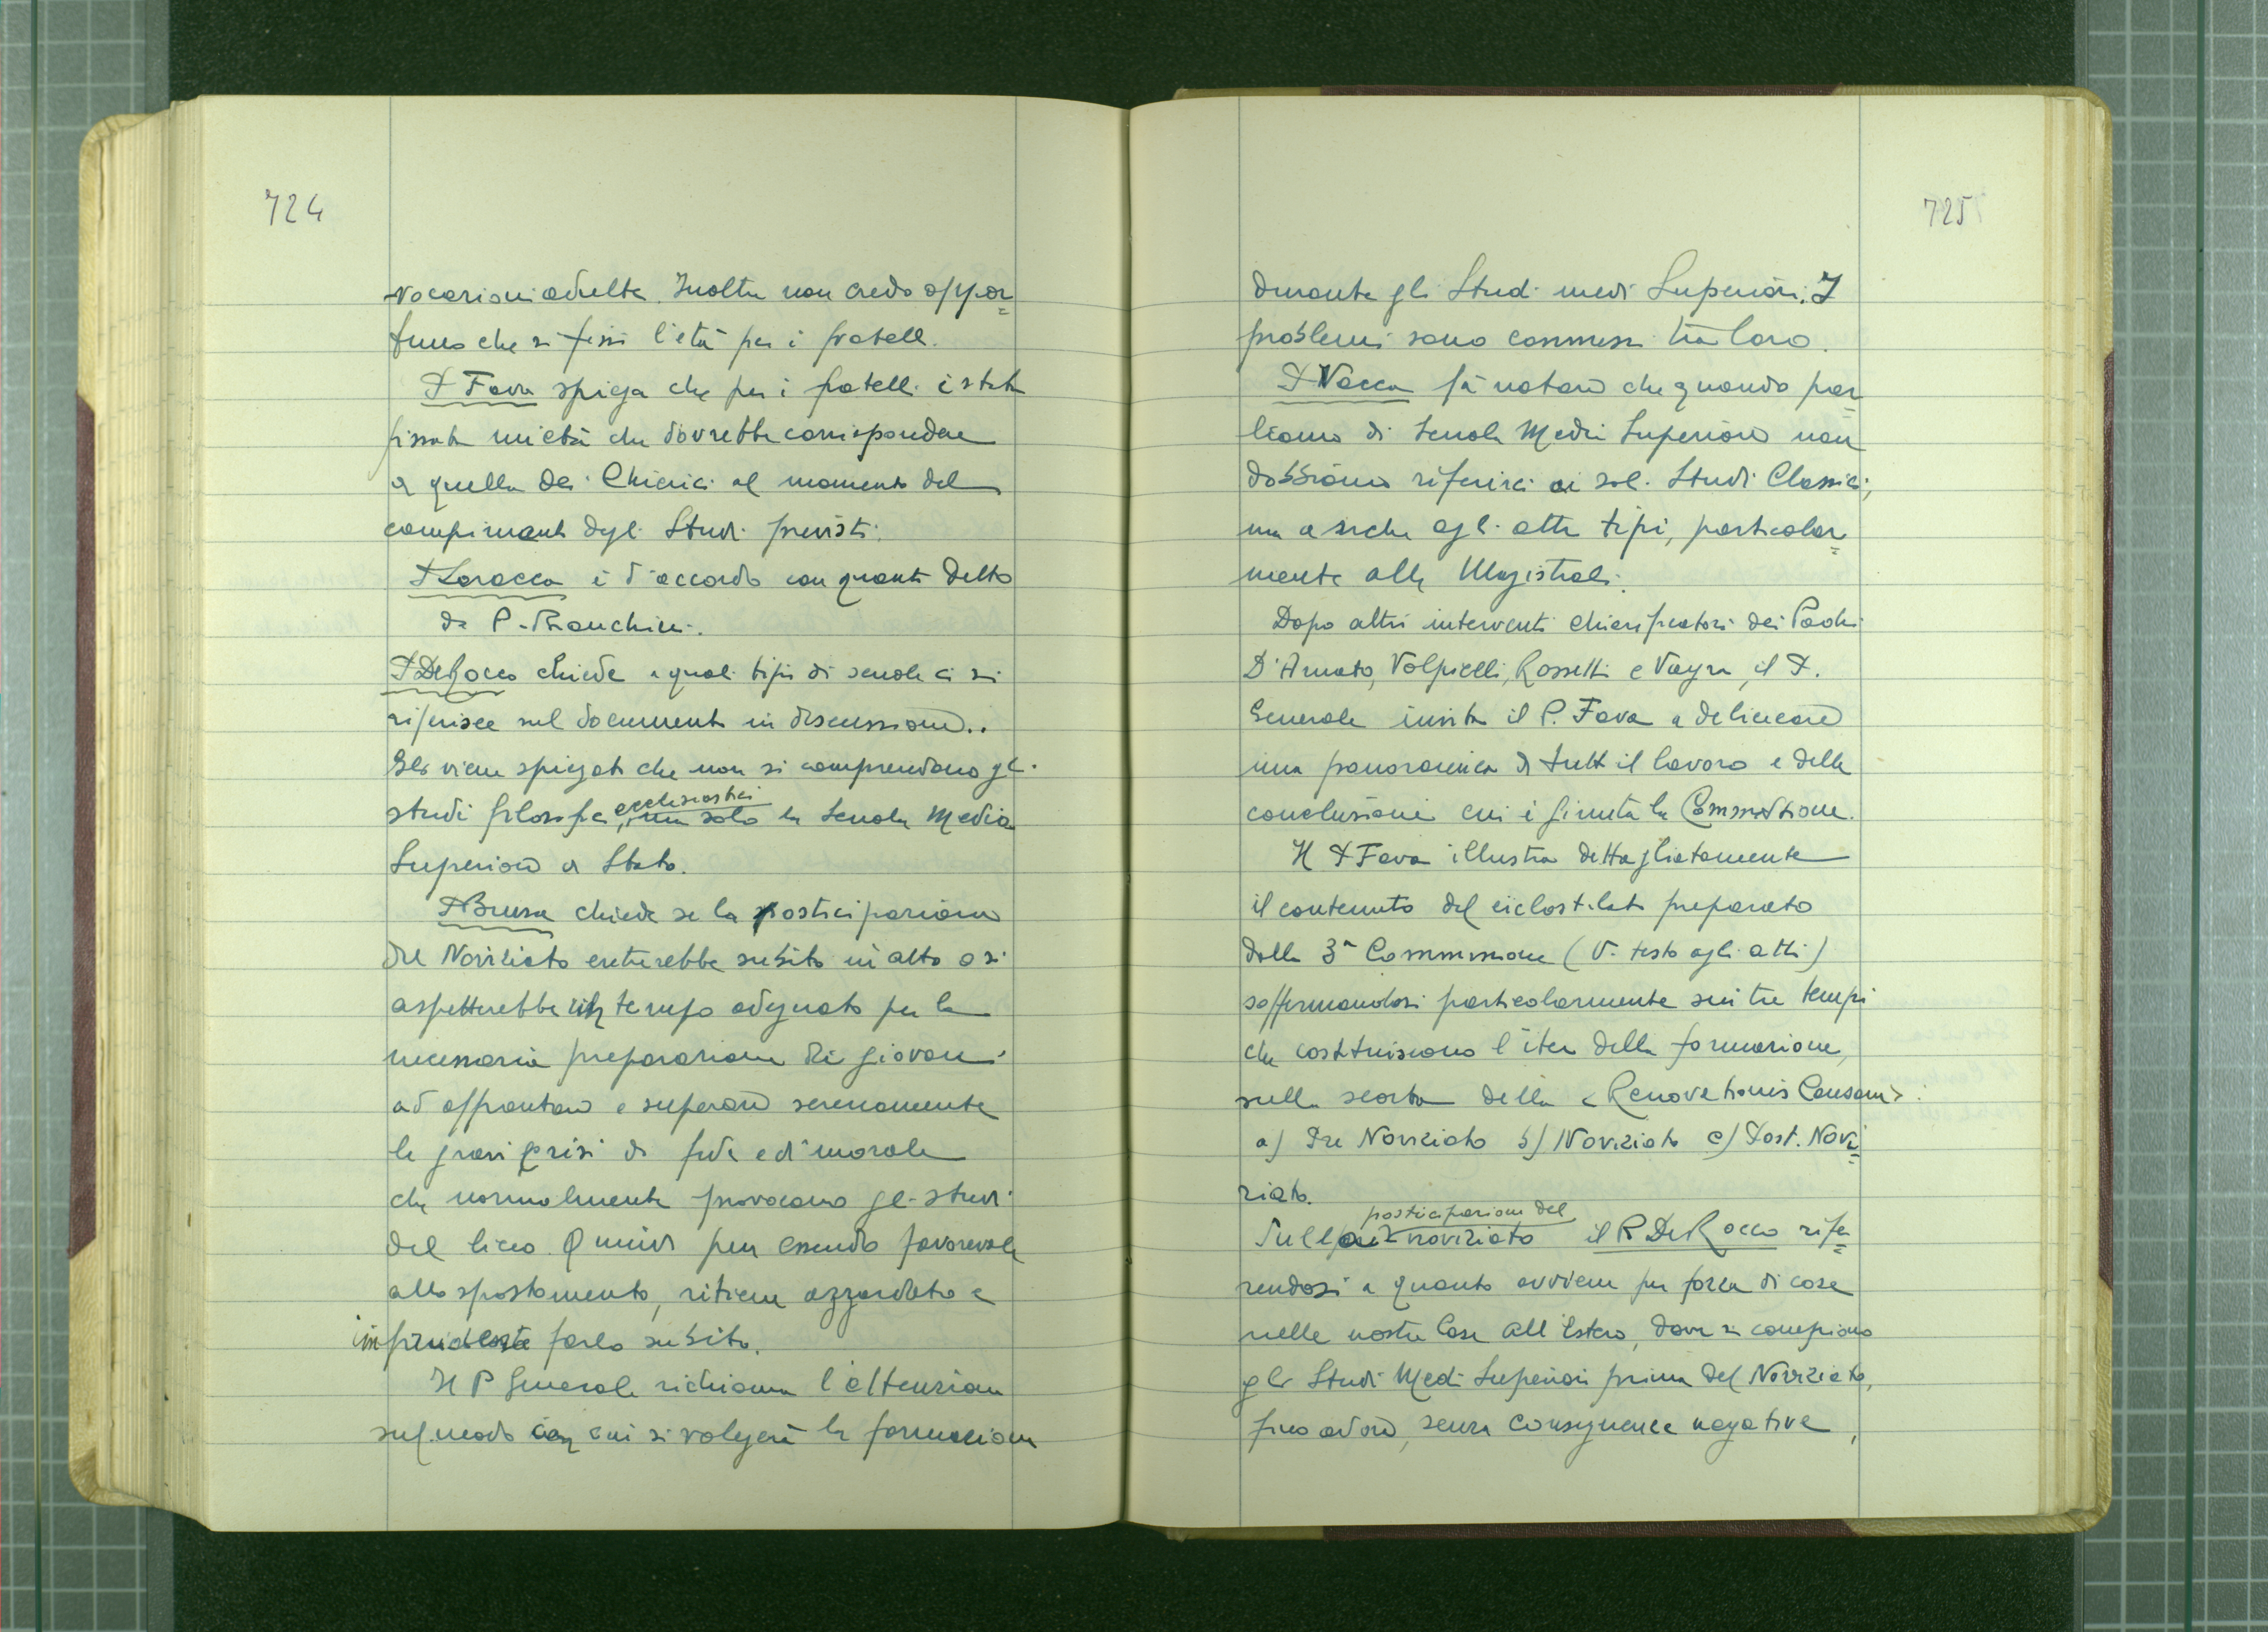 724
vocazioni adulte. Inoltre non credo oppor=
tuno che si fissi l'età per i fratelli.
P Fava spiega che per i fratelli è stata
fissata un'età che dovrebbe corrispondere
a quella dei Chierici al momento del
compimento degli Studi previsti.
P Laracca è d'accordo con quanto detto
da P. Bianchini.
P De Rocco chiede a quali tipi di scuole ci si
riferisce sul documento in discussione..
Gli viene spiegato che non si comprendono gli
studi filosofici, ecclesiastici ma solo la Scuola Media
Superiore di Stato.
P Brusa chiede se la posticipazione
del Noviziato entrerebbe subito in atto o si
aspetterebbe un tempo adeguato per la
necessaria preparazione dei giovani
ad affrontare e superare serenamente
le gravi crisi di fede e di morale
che normalmente provocano gli studi
del liceo. Quindi pur essendo favorevole
allo spostamento, ritiene azzardato e
imprudente farlo subito.
Il P Generale richiama l'attenzione
sul modo con cui si volgerà la formazione
725
durante gli Studi medi Superiori. I
problemi sono connessi tra loro.
P Vacca fa notare che quando par=
liamo di Scuola Media Superiore non
dobbiamo riferirci ai soli Studi Classici,
ma anche agli altri tipi, particolar=
mente alle Magistrali.
Dopo altri interventi chiarificatori dei Padri
D'Amato, Volpicelli, Rossetti e Vayra, il P.
Generale invita il P. Fava a delineare
una panoramica di tutto il lavoro e delle
conclusioni cui è giunta la Commissione.
Il P Fava illustra dettagliatamente
il contenuto del ciclostilato preparato
dalla 3ª Commissione (V. testo agli atti)
soffermandosi particolarmente sui tre tempi
che costituiscono l'iter della formazione,
sulla scorta della «Renovationis Causam»:
a) Pre Noviziato b) Noviziato c) Post. Novi=
ziato.
Sulla posticipazione del noviziato il P De Rocco rife=
rendosi a quanto avviene per forza di cose
nelle nostre Case all'Estero, dove si compiono
gli Studi Medi Superiori prima del Noviziato,
fino ad ora, senza conseguenze negative,